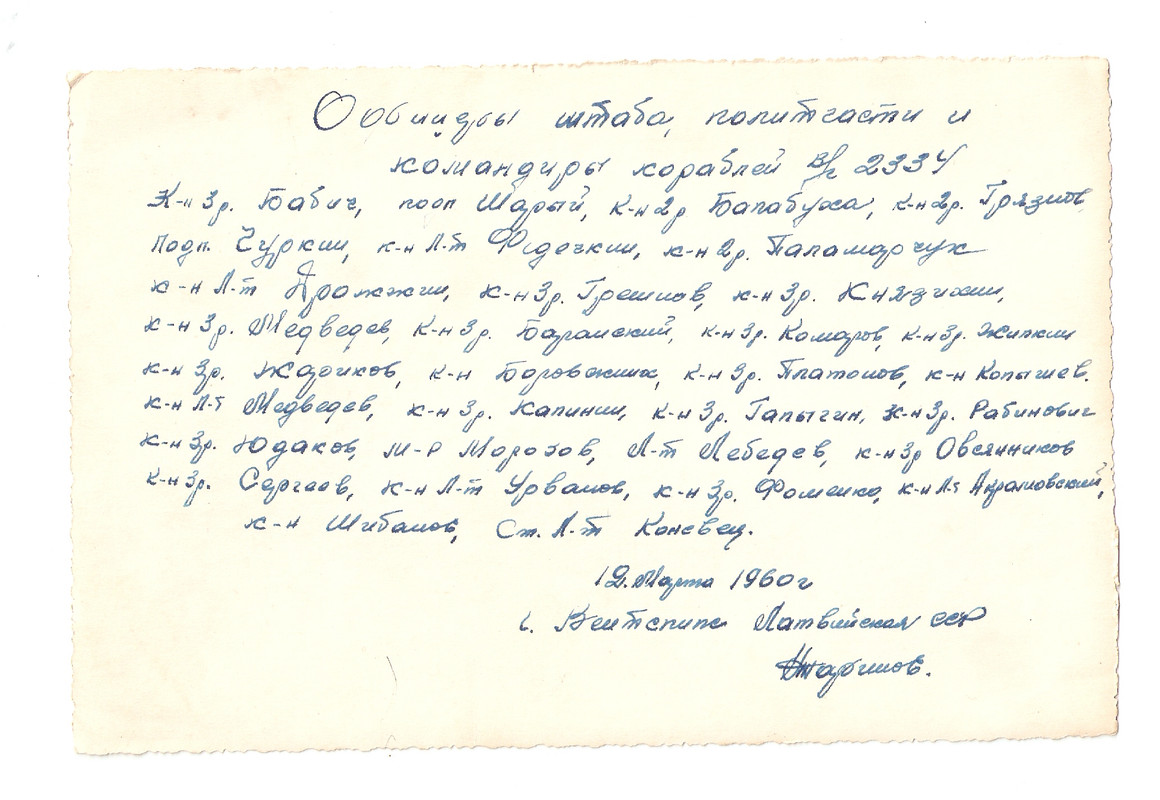 Офицеры штаба, политчасти и
командиры кораблей в/ч 2334
К-н 3р. Бабич, подп Шарый, к-н 2р Балабуха, к-н 2р. Грязнов
подп. Чуркин, к-н Л-т Федечкин, к-н 2р. Паламарчук
к-н Л-т Дрожжин, к-н 3р. Грешнов, к-н 3р. Князихин,
к-н 3р. Медведев, к-н 3р. Баранский, к-н 3р. Комаров, к-н 3р. Жилкин
к-н 3р. Жариков, к-н Боровских, к-н 3р. Платонов, к-н Копышев.
к-н Л-т Медведев, к-н 3р. Калинин, к-н 3р. Галыгин, к-н 3р. Рабинович
к-н 3р. Юдаков, м-р Морозов, Л-т Лебедев, к-н 3р Овсянников
к-н 3р. Сергеев, к-н Л-т Урванов, к-н 3р. Фоменко, к-н Л-т
к-н Шибанов, Ст. Л-т Коневец.
19. Марта 1960 г
г. Вентспилс Латвийская ССР